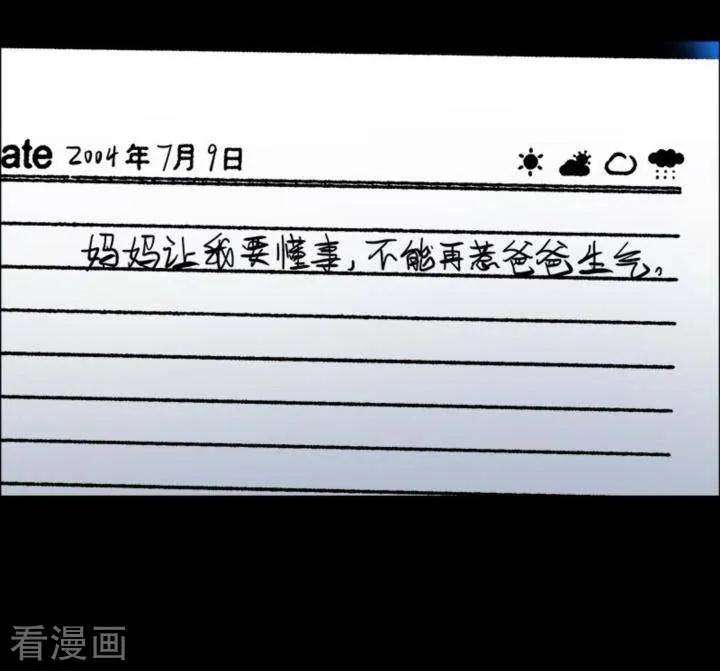 ate 2004年7月9日
妈妈让我要懂事,不能再惹爸爸生气。
看漫画